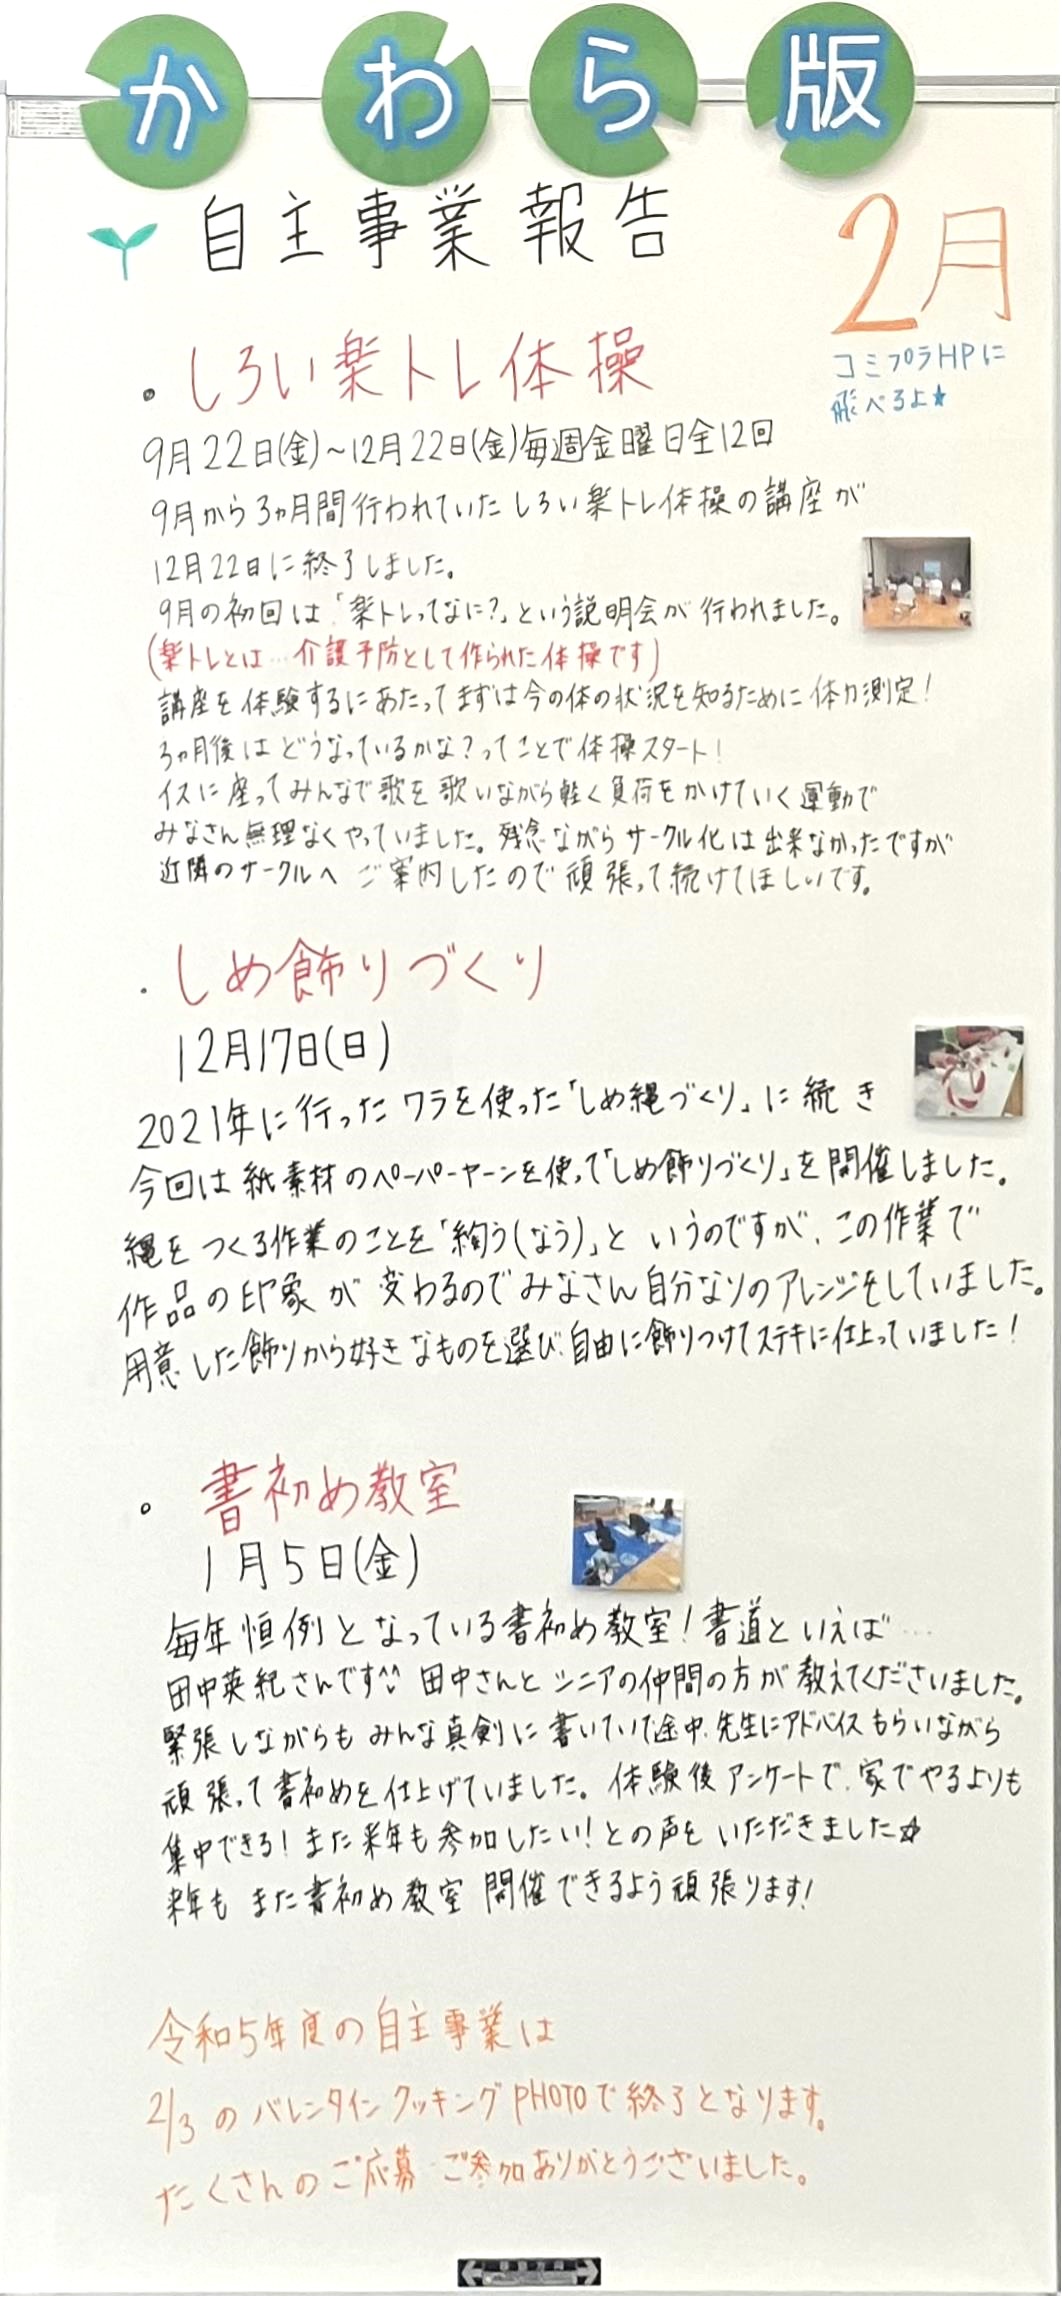 かわら版
自主事業報告
2月
コミプラHPに
飛べるよ★
・しろい楽トレ体操
9月22日(金)~12月22日(金)毎週金曜日全12回
9月から3ヵ月間行われていたしろい楽トレ体操の講座が
12月22日に終了しました。
9月の初回は「楽トレってなに?」という説明会が行われました。
(楽トレとは…介護予防として作られた体操です)
講座を体験するにあたってまずは今の体の状況を知るために体力測定!
3ヵ月後はどうなっているかな?ってことで体操スタート!
イスに座ってみんなで歌を歌いながら軽く負荷をかけていく運動で
みなさん無理なくやっていました。残念ながらサークル化は出来なかったですが
近隣のサークルへご案内したので頑張って続けてほしいです。
・しめ飾りづくり
12月17日(日)
2021年に行ったワラを使った「しめ縄づくり」に続き
今回は紙素材のペーパーヤーンを使って「しめ飾りづくり」を開催しました。
縄をつくる作業のことを「綯う(なう)」というのですが、この作業で
作品の印象が変わるのでみなさん自分なりのアレンジをしていました。
用意した飾りから好きなものを選び、自由に飾りつけてステキに仕上っていました!
。書初め教室
1月5日(金)
毎年恒例となっている書初め教室!書道といえば…
田中英紀さんです^^ 田中さんとシニアの仲間の方が教えてくださいました。
緊張しながらもみんな真剣に書いていて途中、先生にアドバイスもらいながら
頑張って書初めを仕上げていました。体験後アンケートで、家でやるよりも
集中できる!また来年も参加したい!との声をいただきました☆
来年もまた書初め教室開催できるよう頑張ります!
令和5年度の自主事業は
2/3のバレンタインクッキングPHOTOで終了となります。
たくさんのご応募・ご参加ありがとうございました。